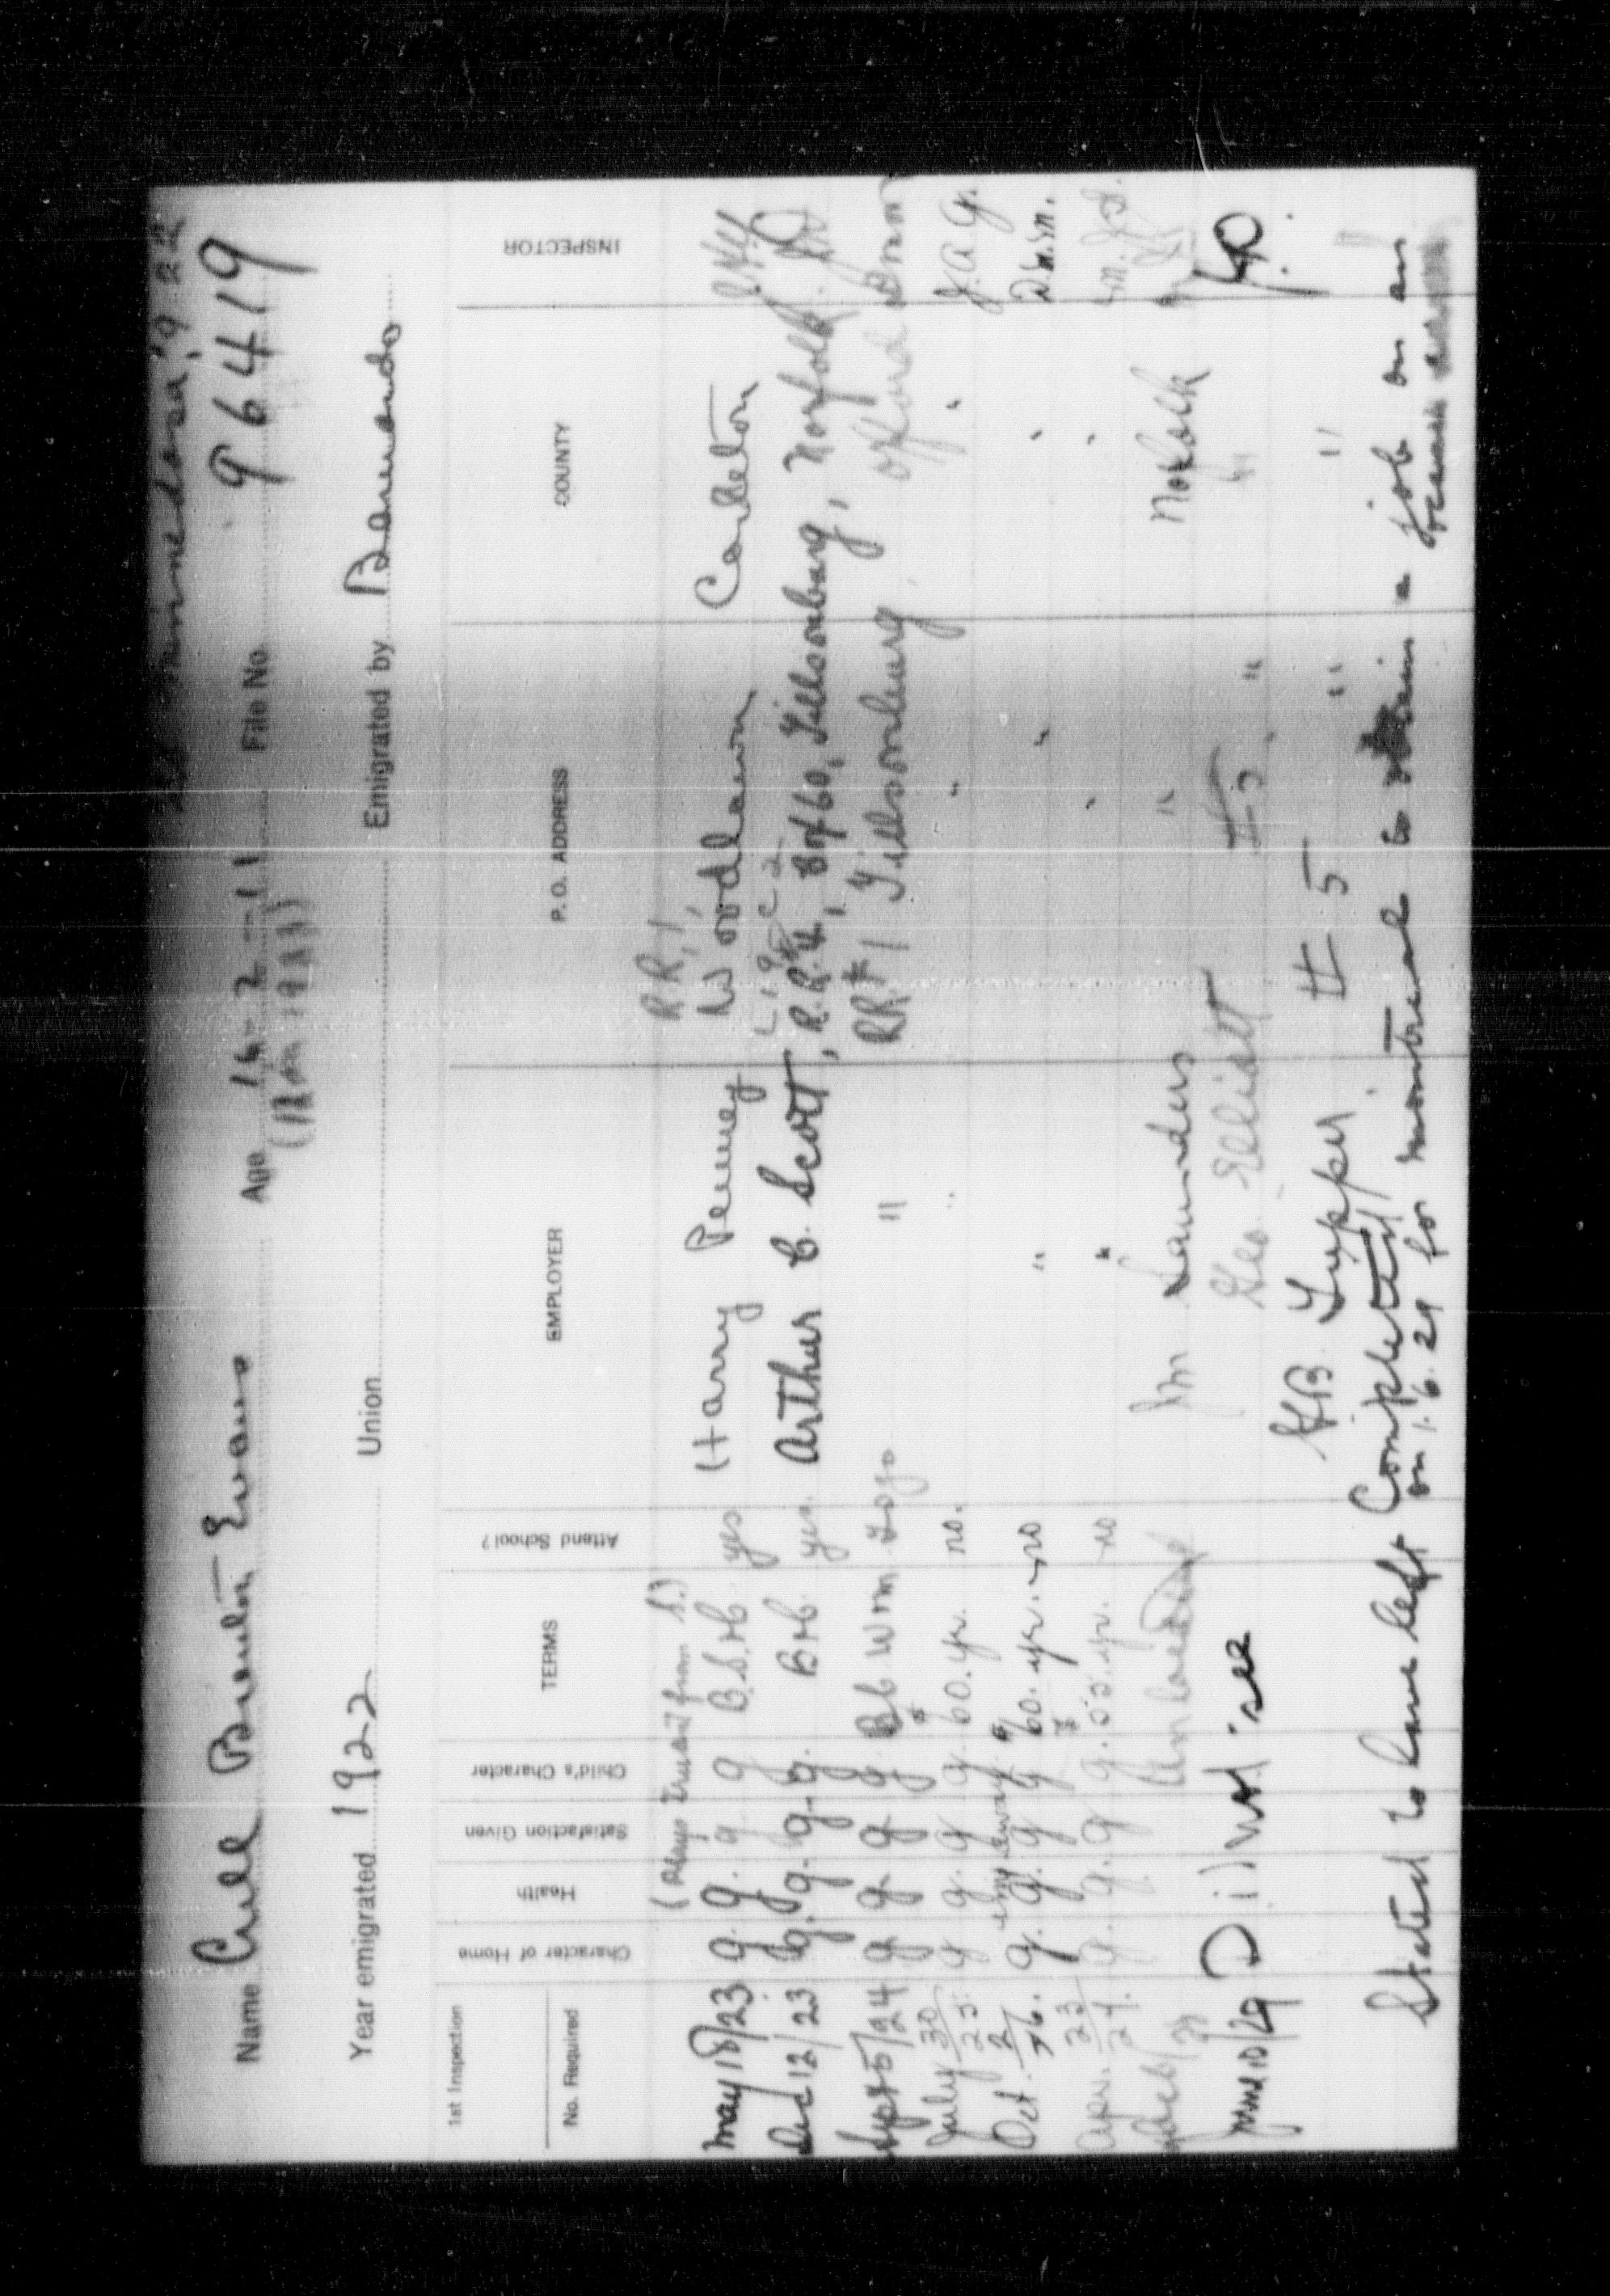 Minnedosa '9.22
Name Cecil Brenton Evans Age 14-2-11 File No. 96419
Year emigrated 1922 Union Emigrated by Barnardo
1st Inspection
No. Required Character of Home Health Satisfaction Given Child's Character TERMS Attend School? EMPLOYER P.O. ADDRESS COUNTY INSPECTOR
(Plays truant from S.) R R 1,
May 18/23 g. g. g g B.S.+C. yes Harry Penney Woodlawn Carleton
Dec 12/23 g. g. g. g. B+C. yes. Arthur C. Scott, R.R. 4, Box 60, Tillsonburg, Norfolk
Sept 5/24 g g g g RR #1 Tillsonburg, Oxford
July 30/25 g g. g g. 60. yr. no. " " " J.A.G.
Oct. 2/26. g. g. g g 60. yr. no " " "
Apr. 23/27. g. g. g g. yr. no " " "
Jm Saunders " Norfolk
Geo. Elliott #5 " "
June 10/29 Did not see
H B Tupper #5 " "
Stated to have left Completed
on 1.6.29 for Montreal to obtain a job on an